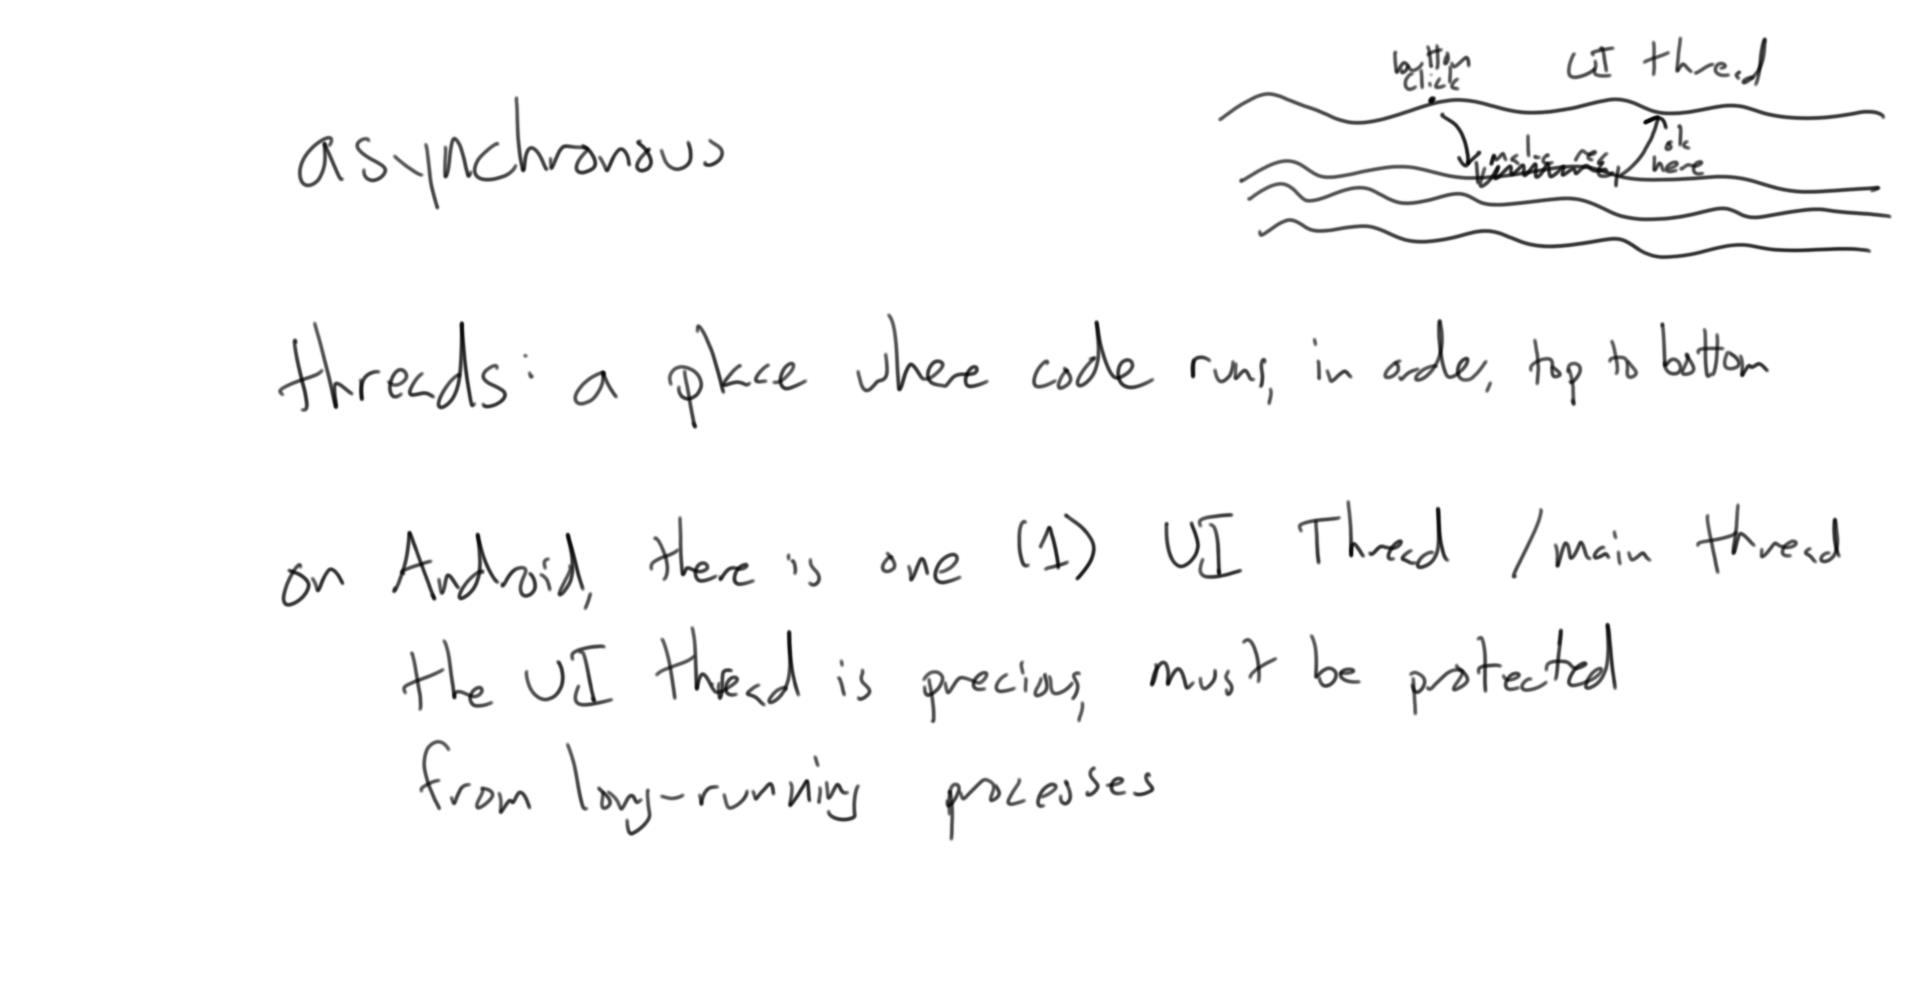 button
click
UI thread
make req
ok
here
asynchronous
threads: a place where code runs, in order, top to bottom
on Android, there is one (1) UI Thread / main thread
the UI thread is precious, must be protected
from long-running processes